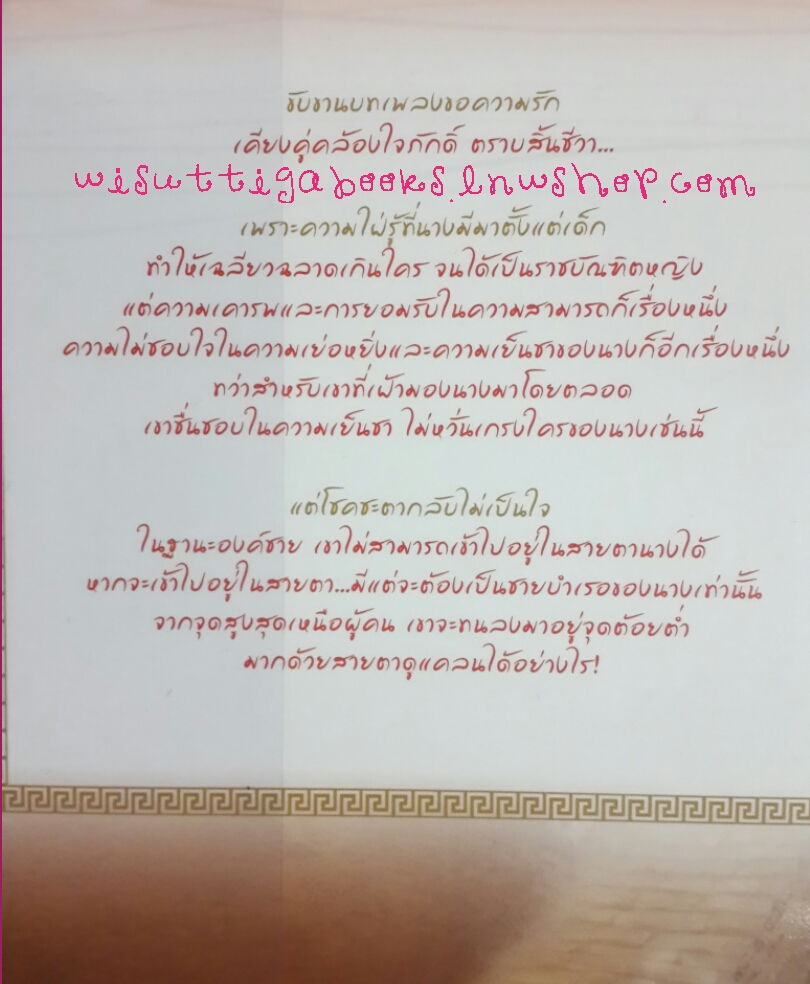 ขับขานบทเพลงขอความรัก
เคียงคู่คล้องใจภักดิ์ ตราบสิ้นชีวา...
wisuttigabooks.lnwshop.com
เพราะความใฝ่รู้ที่นางมีมาตั้งแต่เด็ก
ทำให้เฉลียวฉลาดเกินใคร จนได้เป็นราชบัณฑิตหญิง
แต่ความเคารพและการยอมรับในความสามารถก็เรื่องหนึ่ง
ความไม่ชอบใจในความเย่อหยิ่งและความเย็นชาของนางก็อีกเรื่องหนึ่ง
ทว่าสำหรับเขาที่เฝ้ามองนางมาโดยตลอด
เขาชื่นชอบในความเย็นชา ไม่หวั่นเกรงใครของนางเช่นนี้
แต่โชคชะตากลับไม่เป็นใจ
ในฐานะองค์ชาย เขาไม่สามารถเข้าไปอยู่ในสายตานางได้
หากจะเข้าไปอยู่ในสายตา...มีแต่จะต้องเป็นชายบำเรอของนางเท่านั้น
จากจุดสูงสุดเหนือผู้คน เขาจะทนลงมาอยู่จุดต้อยต่ำ
มากด้วยสายตาดูแคลนได้อย่างไร!